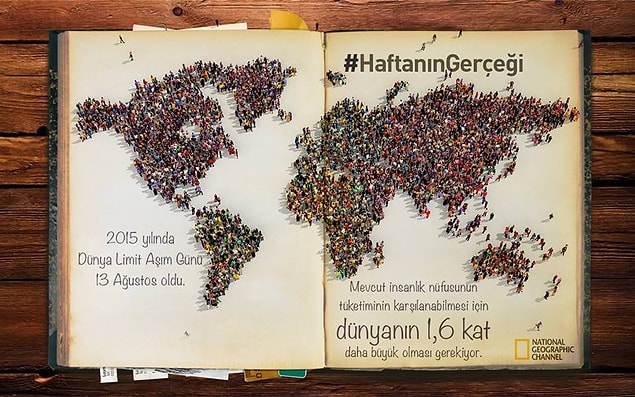 #HaftanınGerçeği
2015 yılında
Dünya Limit Aşım Günü
13 Ağustos oldu.
Mevcut insanlık nüfusunun
tüketiminin karşılanabilmesi için
dünyanın 1,6 kat
daha büyük olması gerekiyor.
NATIONAL
GEOGRAPHIC
CHANNEL